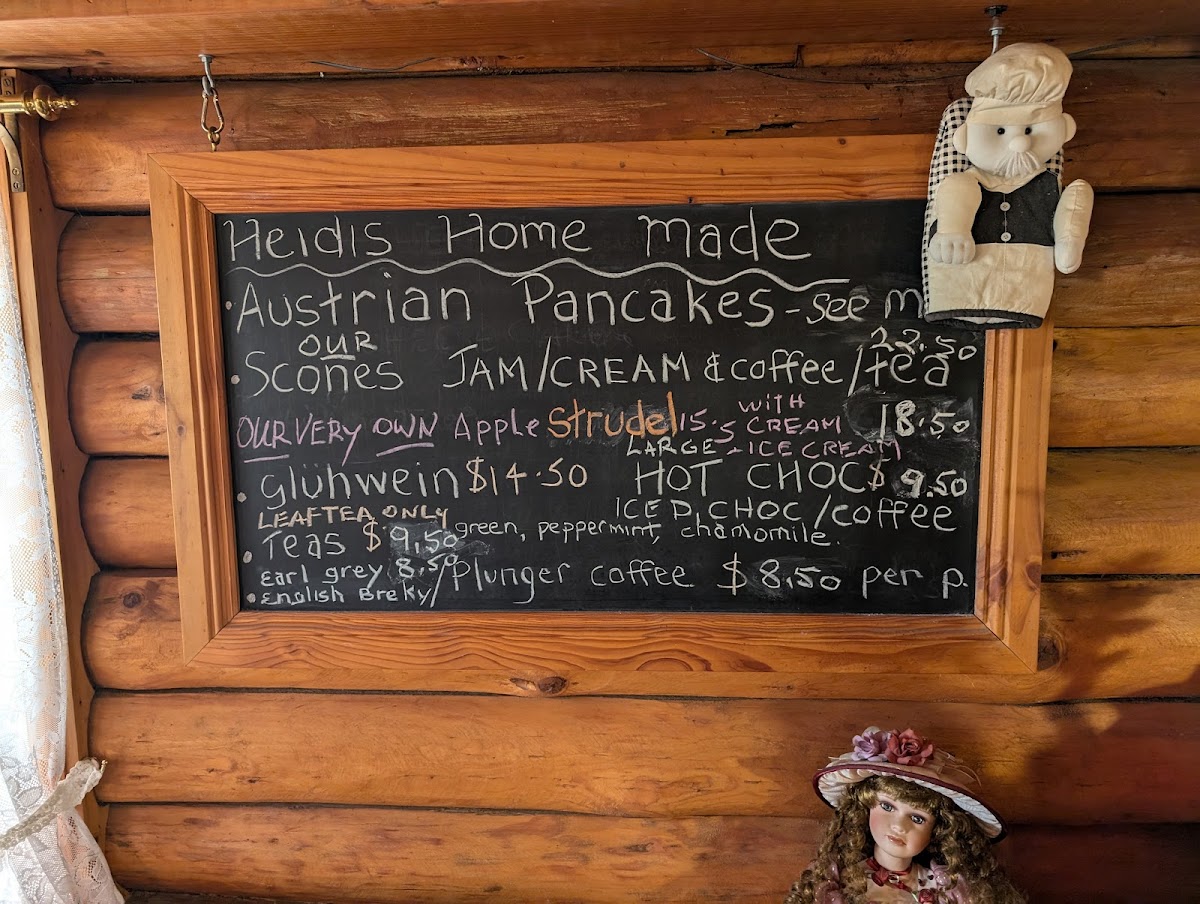 Heidis Home made
Austrian Pancakes - see m
OUR 22.50
Scones JAM/CREAM & coffee/tea
OUR VERY OWN Apple Strudel 15.5 WITH CREAM 18.50
LARGE + ICE CREAM
glühwein $14.50 HOT CHOC $9.50
LEAF TEA ONLY ICED CHOC/coffee
Teas $9.50 green, peppermint, chamomile.
Earl grey 8.50/Plunger coffee $8.50 per p.
English Breky/